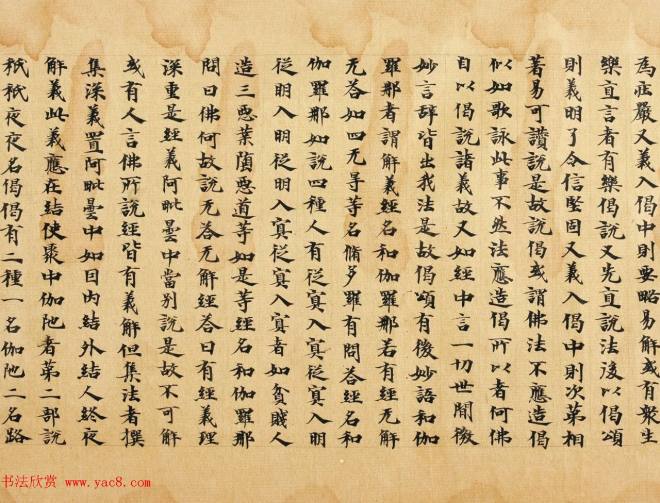 為莊嚴又義入偈中則要略易解或有衆生
樂直言者有樂偈說又先直說法後以偈頌
則義明了令信堅固又義入偈中則次第相
著易可讚說是故說偈或謂佛法不應造偈
似如歌詠此事不然法應造偈所以者何佛
自以偈說諸義故又如經中言一切世間微
妙言辭皆出我法是故偈頌有後妙語和伽
羅那者謂解義經名和伽羅那若有經无解
无荅如四无导等名脩多羅有問荅經名和
伽羅那如說四種人有從冥入冥從冥入明
從明入明從明入冥從冥入冥者如貧賤人
造三惡業墮惡道等如是等經名和伽羅那
問曰佛何故說无荅无解經荅曰有經義理
深重是經義阿毗曇中當別說是故不可解
或有人言佛所說經皆有義解但集法者撰
集深義置阿毗曇中如因內結外結人終夜
解義此義應在結使聚中伽陁者第二部說
秖秖夜夜名偈偈有二種一名伽陁二名路
书法欣赏 www.yac8.com